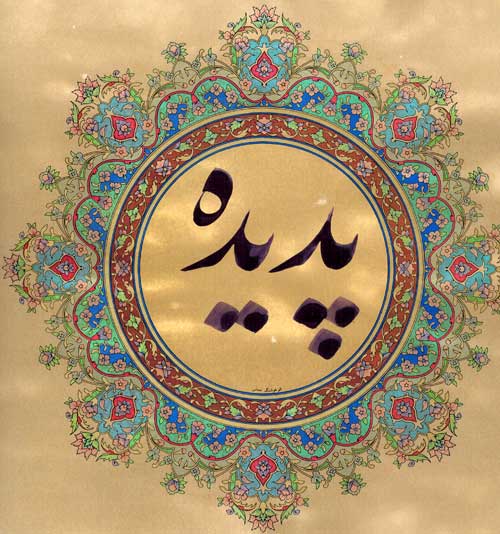 پدیده